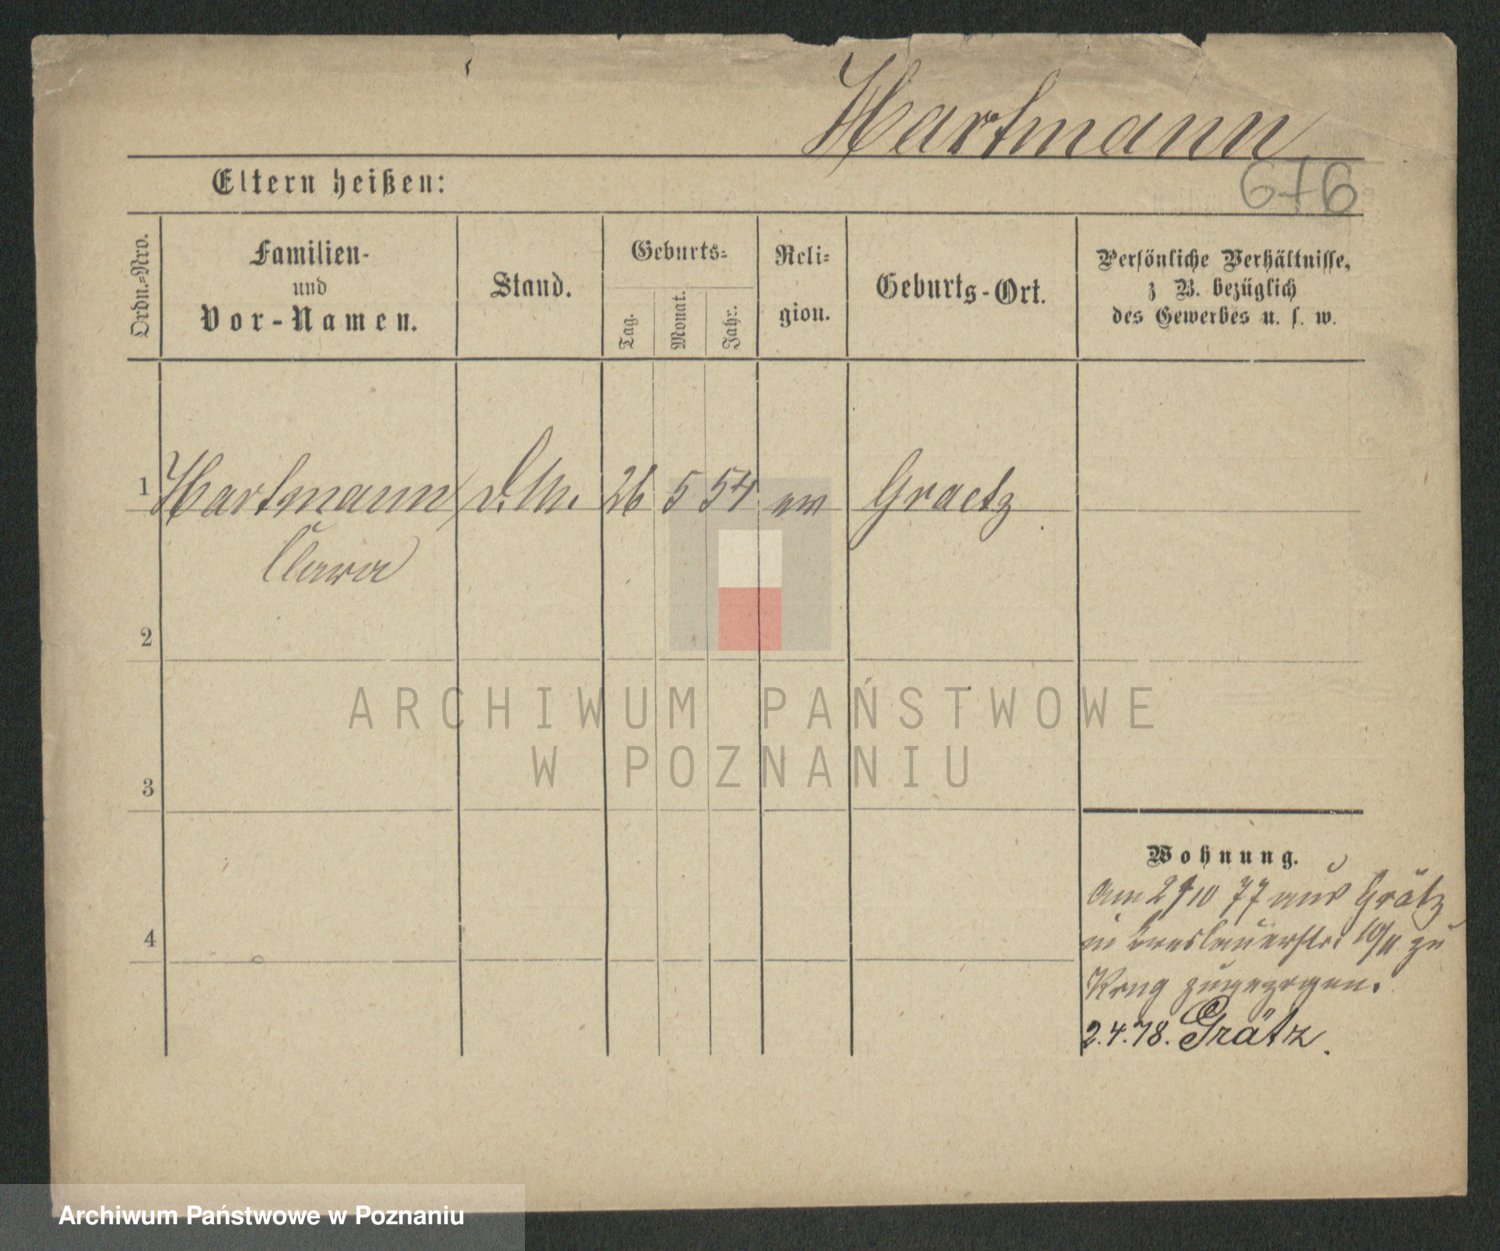 Hartmann
676
Eltern heißen:
Ordn.-Nro.
Familien-
und
Vor-Namen.
Stand.
Geburts-
Tag.
Monat.
Jahr.
Reli-
gion.
Geburts-Ort.
Persönliche Verhältnisse,
z B. bezüglich
des Gewerbes u. s. w.
1 Hartmann D.M. 26 5 54 ev Graetz
Clara
2
3
4
Wohnung.
Am 2/10 77 aus Grätz
in Breslauerstr. 10/11 zu
Krug zugezogen.
2.4.78. Grätz.
ARCHIWUM PAŃSTWOWE
W POZNANIU
Archiwum Państwowe w Poznaniu